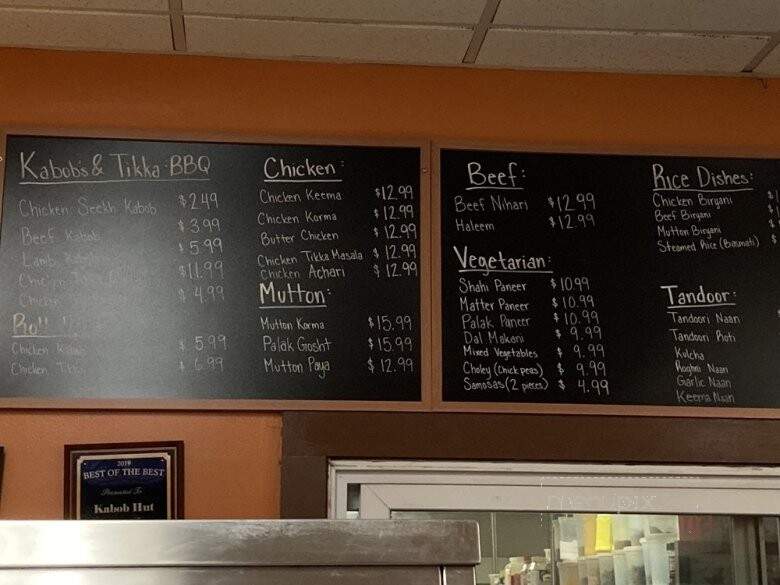 Kabob's & Tikka BBQ
Chicken Seekh Kabob $2.49
Beef Kabob $3.99
Lamb $5.99
$11.99
$4.99
Roll
Chicken $5.99
Chicken $6.99
Chicken:
Chicken Keema $12.99
Chicken Korma $12.99
Butter Chicken $12.99
Chicken Tikka Masala $12.99
Chicken Achari $12.99
Mutton:
Mutton Korma $15.99
Palak Grosht $15.99
Mutton Paya $12.99
Beef:
Beef Nihari $12.99
Haleem $12.99
Vegetarian:
Shahi Paneer $10.99
Matter Paneer $10.99
Palak Paneer $10.99
Dal Makani $9.99
Mixed Vegetables $9.99
Choley (Chick peas) $9.99
Samosas (2 pieces) $4.99
Rice Dishes:
Chicken Biryani
Beef Biryani
Mutton Biryani
Steamed Rice (Basmati)
Tandoor:
Tandoori Naan
Tandoori Roti
Kulcha
Roghni Naan
Garlic Naan
Keema Naan
2019
BEST OF THE BEST
Presented To
Kabob Hut